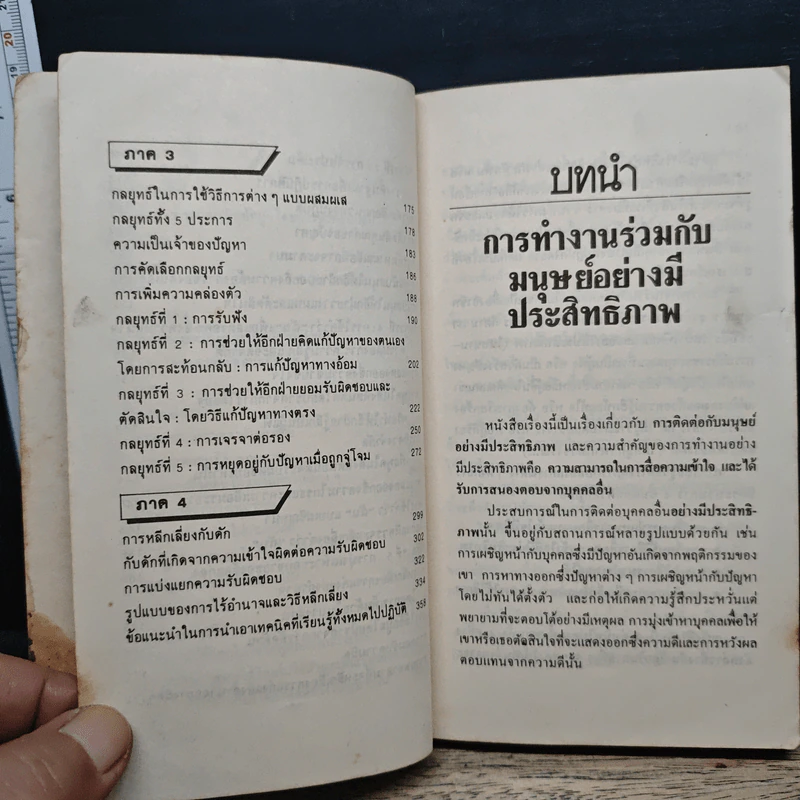 ภาค 3
กลยุทธ์ในการใช้วิธีการต่าง ๆ แบบผสมผเส 175
กลยุทธ์ทั้ง 5 ประการ 178
ความเป็นเจ้าของปัญหา 183
การคัดเลือกกลยุทธ์ 186
การเพิ่มความคล่องตัว 188
กลยุทธ์ที่ 1 : การรับฟัง 190
กลยุทธ์ที่ 2 : การช่วยให้อีกฝ่ายคิดแก้ปัญหาของตนเอง
โดยการสะท้อนกลับ : การแก้ปัญหาทางอ้อม 202
กลยุทธ์ที่ 3 : การช่วยให้อีกฝ่ายยอมรับผิดชอบและ
ตัดสินใจ : โดยวิธีแก้ปัญหาทางตรง 222
กลยุทธ์ที่ 4 : การเจรจาต่อรอง 250
กลยุทธ์ที่ 5 : การหยุดอยู่กับปัญหาเมื่อถูกจู่โจม 272
ภาค 4
การหลีกเลี่ยงกับดัก 299
กับดักที่เกิดจากความเข้าใจผิดต่อความรับผิดชอบ 302
การแบ่งแยกความรับผิดชอบ 322
รูปแบบของการไร้อำนาจและวิธีหลีกเลี่ยง 334
ข้อแนะนำในการนำเอาเทคนิคที่เรียนรู้ทั้งหมดไปปฏิบัติ 358
บทนำ
การทำงานร่วมกับ
มนุษย์อย่างมี
ประสิทธิภาพ
หนังสือเรื่องนี้เป็นเรื่องเกี่ยวกับ การติดต่อกับมนุษย์
อย่างมีประสิทธิภาพ และความสำคัญของการทำงานอย่าง
มีประสิทธิภาพคือ ความสามารถในการสื่อความเข้าใจ และได้
รับการสนองตอบจากบุคคลอื่น
ประสบการณ์ในการติดต่อบุคคลอื่นอย่างมีประสิทธิ-
ภาพนั้น ขึ้นอยู่กับสถานการณ์หลายรูปแบบด้วยกัน เช่น
การเผชิญหน้ากับบุคคลซึ่งมีปัญหาอันเกิดจากพฤติกรรมของ
เขา การหาทางออกซึ่งปัญหาต่าง ๆ การเผชิญหน้ากับปัญหา
โดยไม่ทันได้ตั้งตัว และก่อให้เกิดความรู้สึกประหวั่นแต่
พยายามที่จะตอบโต้อย่างมีเหตุผล การมุ่งเข้าหาบุคคลเพื่อให้
เขาหรือเธอตัดสินใจที่จะแสดงออกซึ่งความดีและการหวังผล
ตอบแทนจากความดีนั้น
20
19